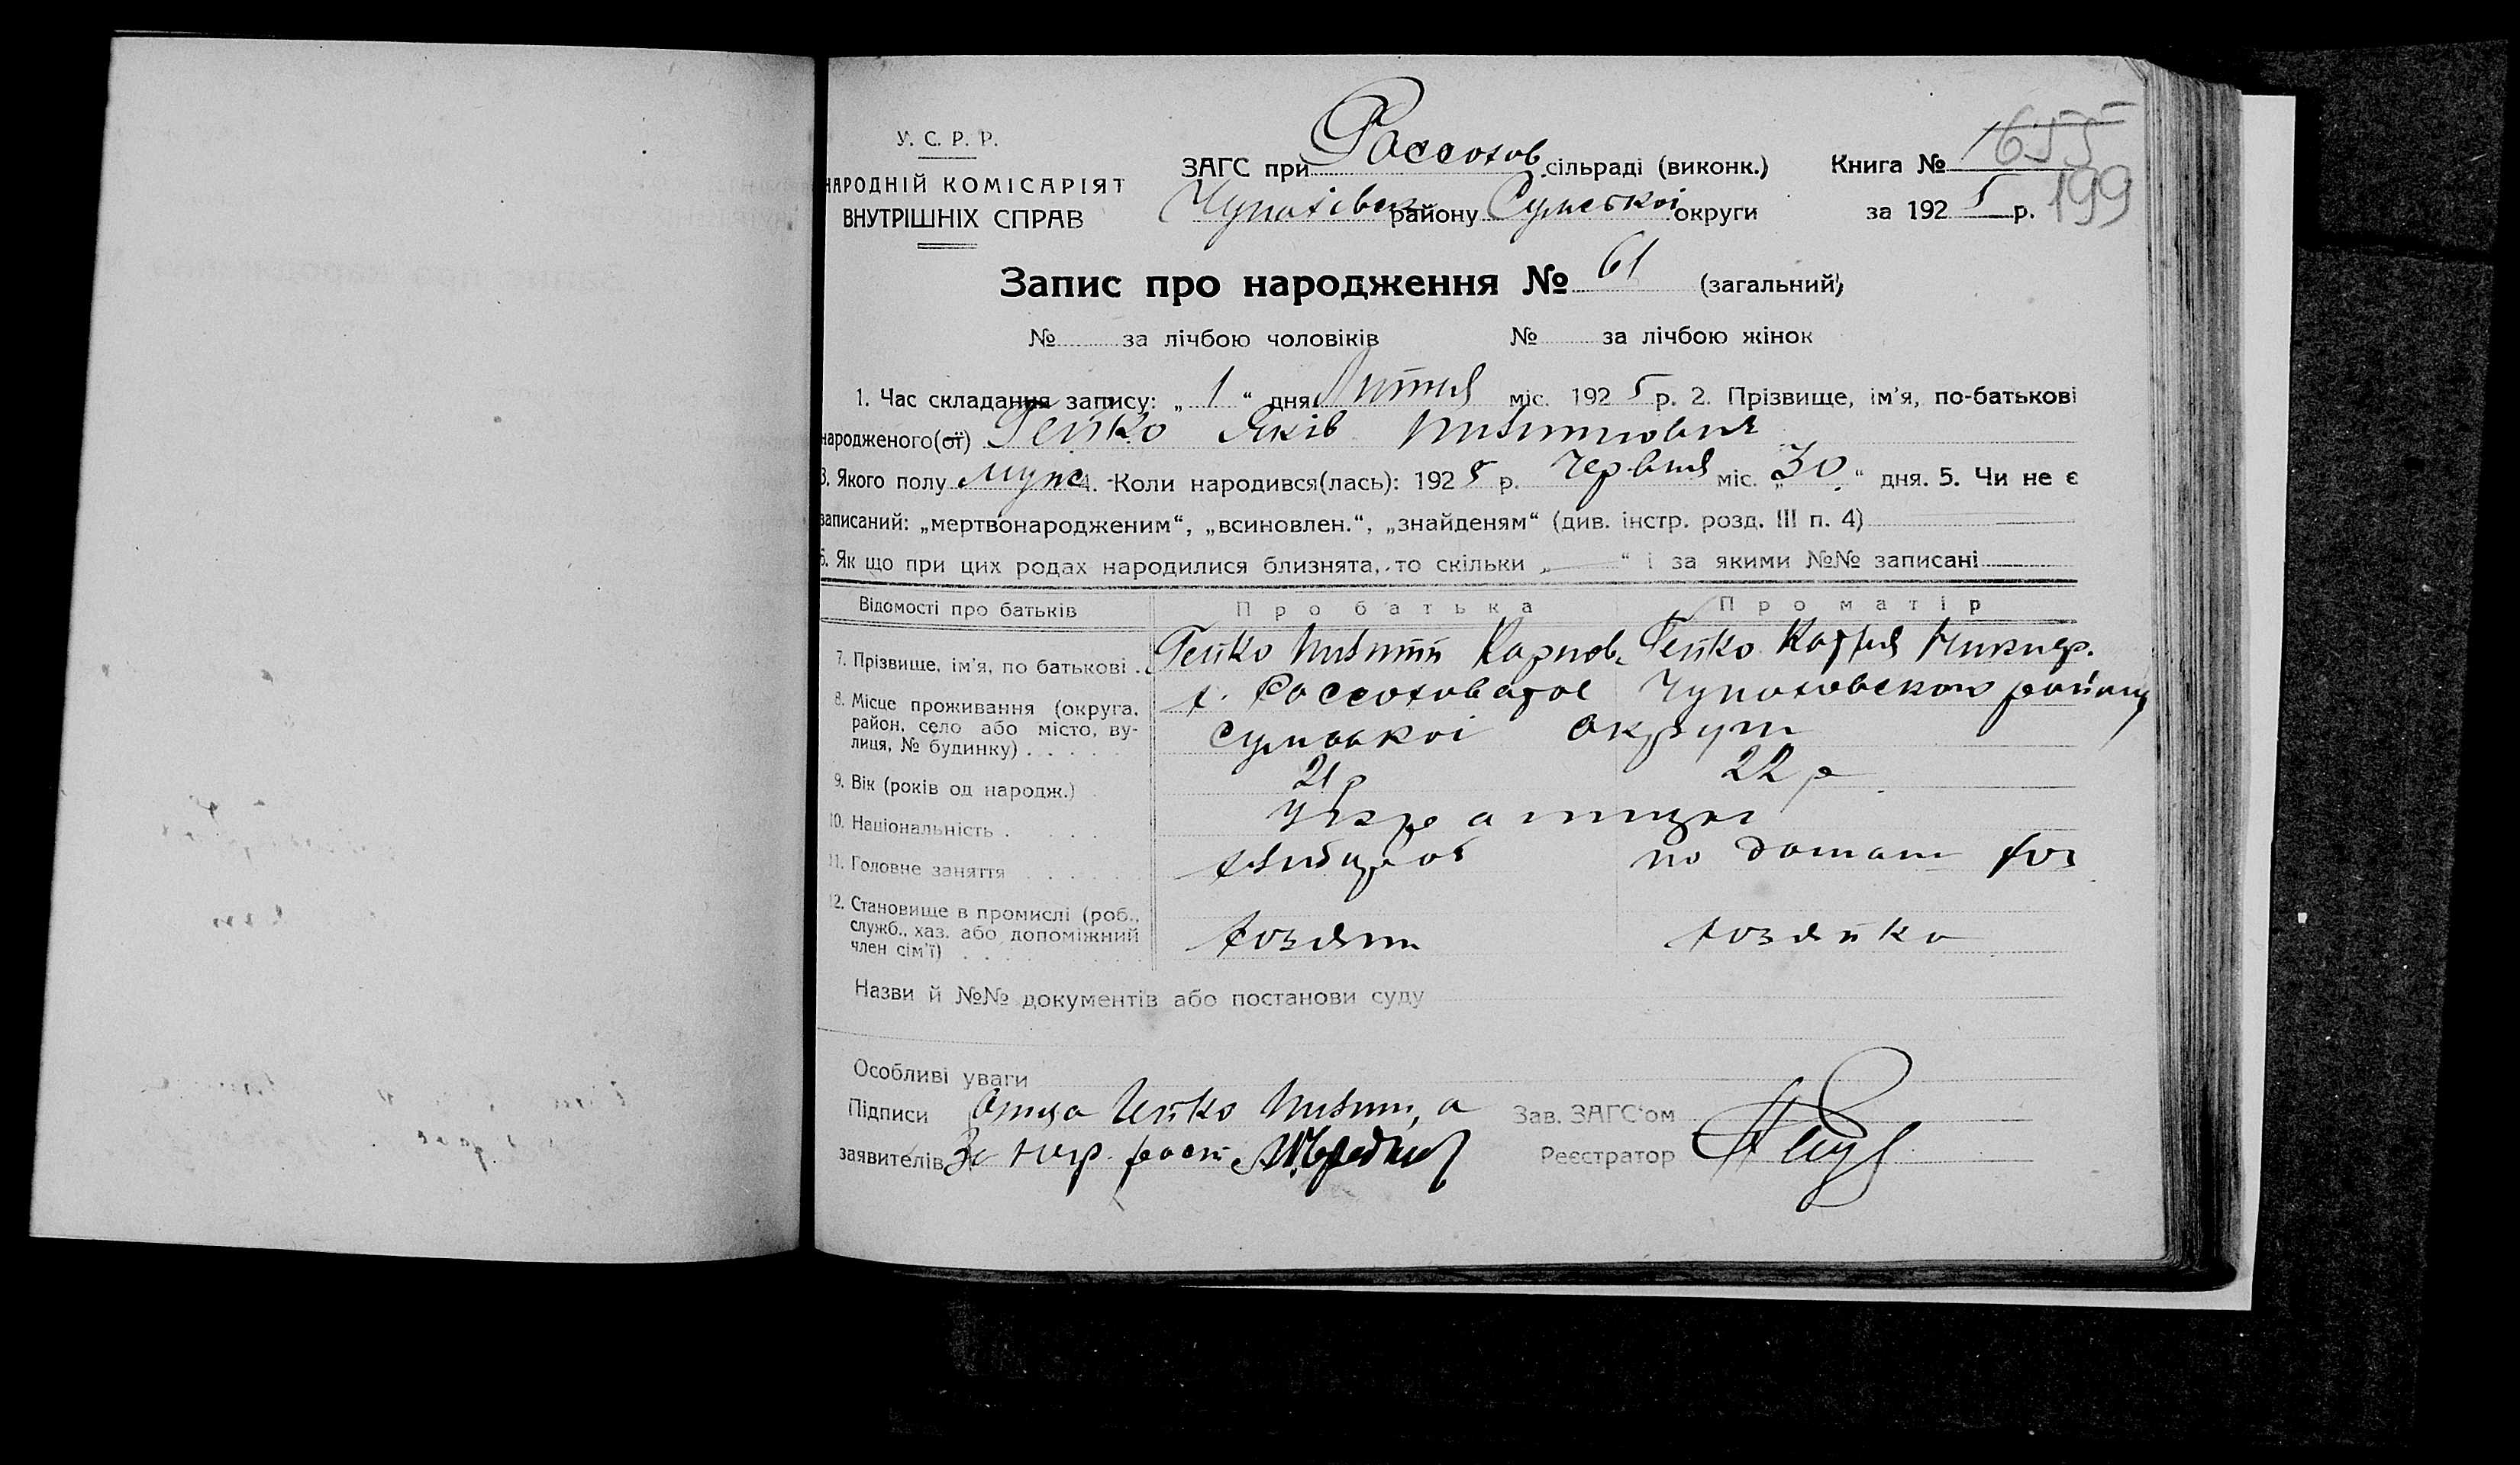 У. С. Р. Р.
НАРОДНІЙ КОМІСАРІЯТ
ВНУТРІШНІХ СПРАВ
ЗАГС при Россохов сільраді (виконк.)
Чупахівськ району Сумської округи
Книга № 1655
за 1925 р. 199
Запис про народження № 61 (загальний)
№ за лічбою чоловіків № за лічбою жінок
1. Час складання запису: „1“ дня Липня міс. 1925 р. 2. Прізвище, ім'я, по-батькові
народженого(ої) Гейко Яків
3. Якого полу муж 4. Коли народився(лась): 1925 р. Червня міс. „30“ дня. 5. Чи не є
записаний: „мертвонародженим“, „всиновлен.“, „знайденям“ (див. інстр. розд. III п. 4)
6. Як що при цих родах народилися близнята, то скільки „ “ і за якими №№ записані
Відомості про батьків Про батька Про матір
7. Прізвище, ім'я, по батькові . Гейко Карпов. Гейко
8. Місце проживання (округа, район, село або місто, вулиця, № будинку) . . . . . х. Россоховатое Чупаховского району
Сумської округи
9. Вік (років од народж.) 21 р 22 р
10. Національність . . . . . Украинцы
11. Головне заняття . . . . . . хлибороб по домаш хоз
12. Становище в промислі (роб., служб., хаз. або допоміжний член сім'ї) . . . . . хозяин хозяйка
Назви й №№ документів або постанови суду
Особливі уваги
Підписи Гейко а
заявителів За
Зав. ЗАГС'ом
Реєстратор